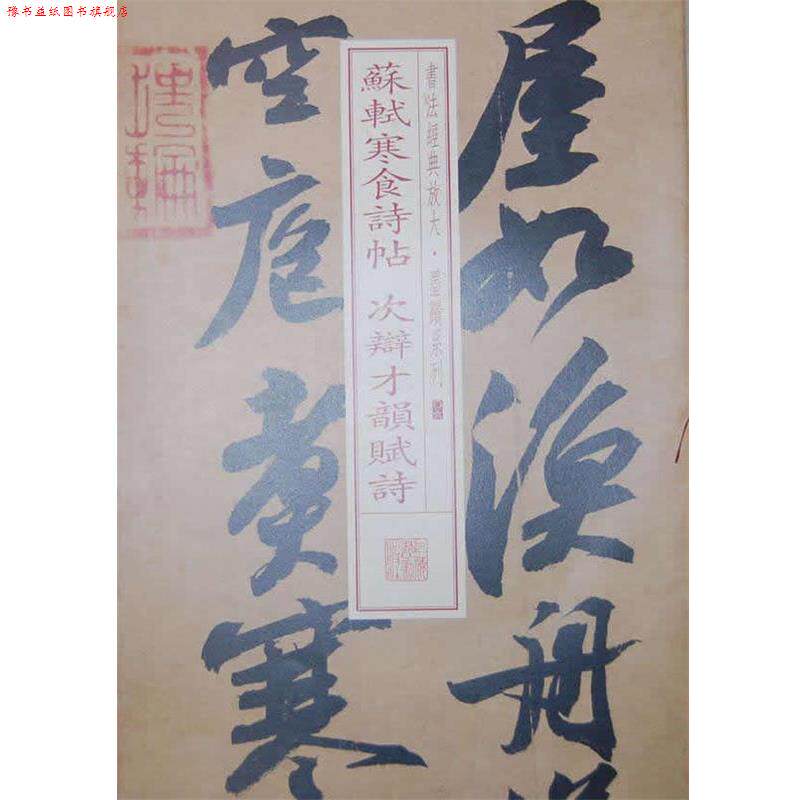 豫书益纸图书旗舰店
屋如漁舟
空庖煮寒
書法經典放大·墨蹟系列
蘇軾寒食詩帖 次辯才韻賦詩